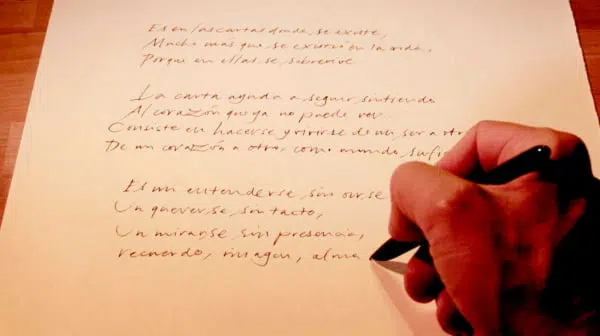 Es en las cartas donde se existe,
Mucho más que se existió en la vida,
Porque en ellas se sobrevive
La carta ayuda a seguir sintiendo
Al corazón que ya no puede ver.
Consiste en hacerse y vivirse de un ser a otro
De un corazón a otro, como mundo,
Es un entenderse, sin oirse
Un quererse, sin tacto,
Un mirarse, sin presencia,
recuerdo, imagen, alma